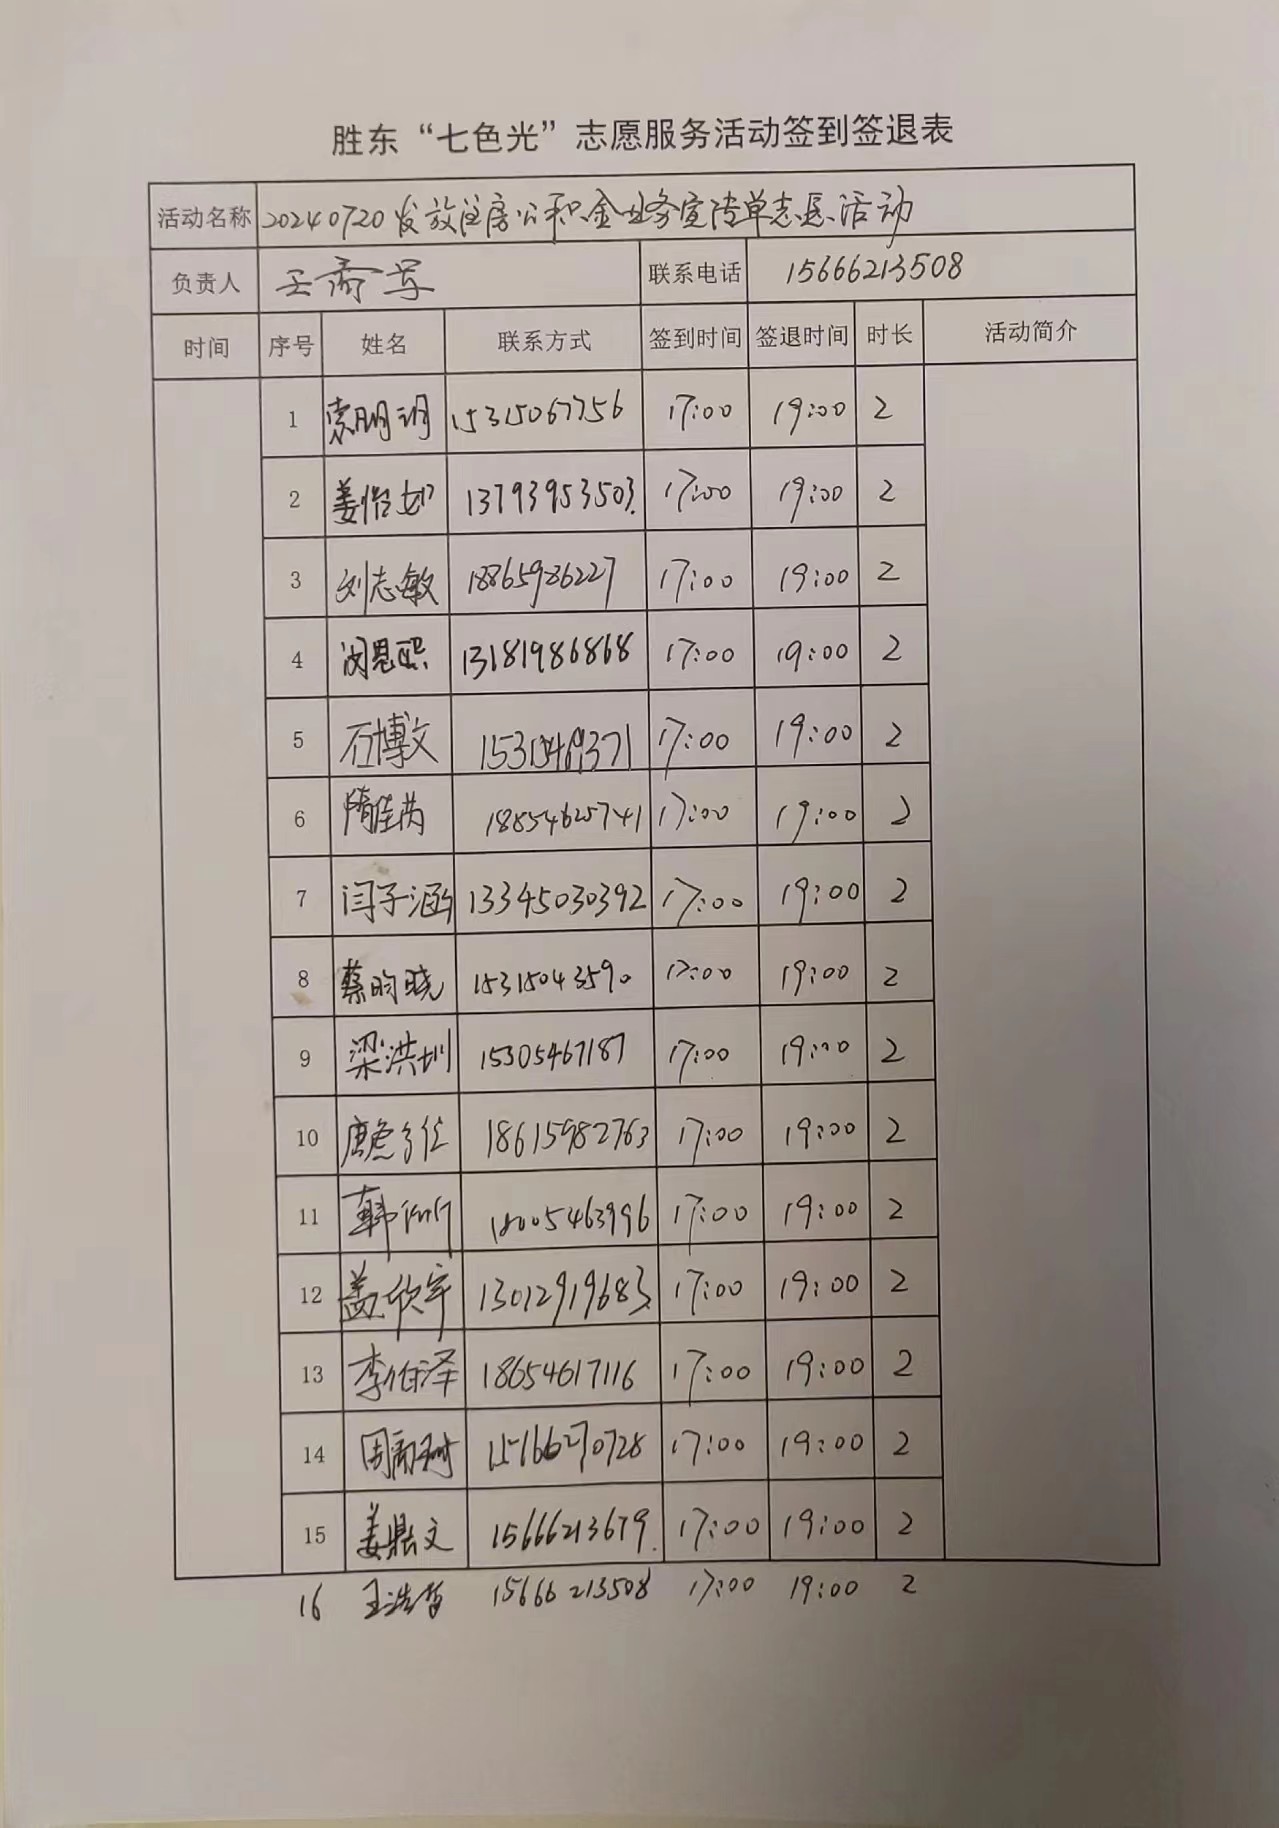 胜东“七色光”志愿服务活动签到签退表
活动名称 20240720发放住房公积金业务宣传单志愿活动
负责人 王 联系电话 15666213508
时间 序号 姓名 联系方式 签到时间 签退时间 时长 活动简介
1 索明明 15315067756 17:00 19:00 2
2 姜怡如 13793953503 17:00 19:00 2
3 刘志敏 18865986227 17:00 19:00 2
4 闵恩熙 13181986868 17:00 19:00 2
5 石博文 17:00 19:00 2
6 隋佳芮 18854625741 17:00 19:00 2
7 闫子涵 13345030392 17:00 19:00 2
8 蔡昀晓 15315043590 17:00 19:00 2
9 梁洪圳 15305467187 17:00 19:00 2
10 18615982763 17:00 19:00 2
11 韩 18005463996 17:00 19:00 2
12 盖欣宇 13012919683 17:00 19:00 2
13 李伯泽 18654617116 17:00 19:00 2
14 周 15166270728 17:00 19:00 2
15 姜鼎文 15666213679 17:00 19:00 2
16 王浩哲 15666213508 17:00 19:00 2